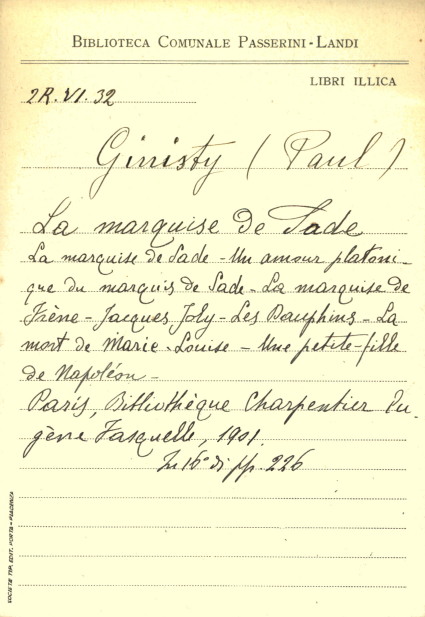 BIBLIOTECA COMUNALE PASSERINI-LANDI
LIBRI ILLICA
2R.VI.32
Ginisty (Paul)
La marquise de Sade
La marquise de Sade - Un amour platoni-
que du marquis de Sade - La marquise de
Frène - Jacques Joly - Les Dauphins - La
mort de Marie-Louise - Une petite-fille
de Napoléon -
Paris, Bibliothèque Charpentier Eu-
gène Fasquelle, 1901.
In 16° di pp. 226
SOCIETÀ TIP. EDIT. PORTA - PIACENZA